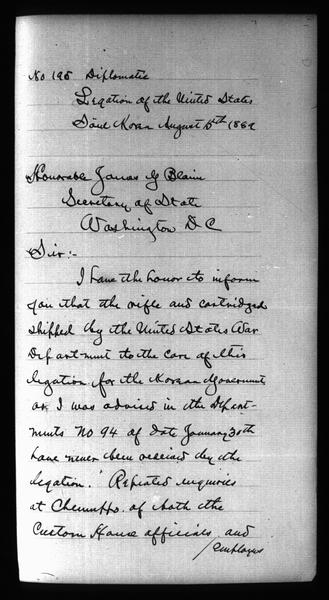 No 195 Diplomatic
Legation of the United States
Söul Korea August 15th 1889
Honorable James G Blaine
Secretary of State
Washington D C
Sir:-
I have the honor to inform
you that the rifle and cartridges
shipped by the United States War
Department to the care of this
legation for the Korean Government
as I was advised in the Depart-
ments No 94 of date January 30th
have never been received by the
legation. Repeated inquiries
at Chemulpo, of both the
Custom House officials and
/employes